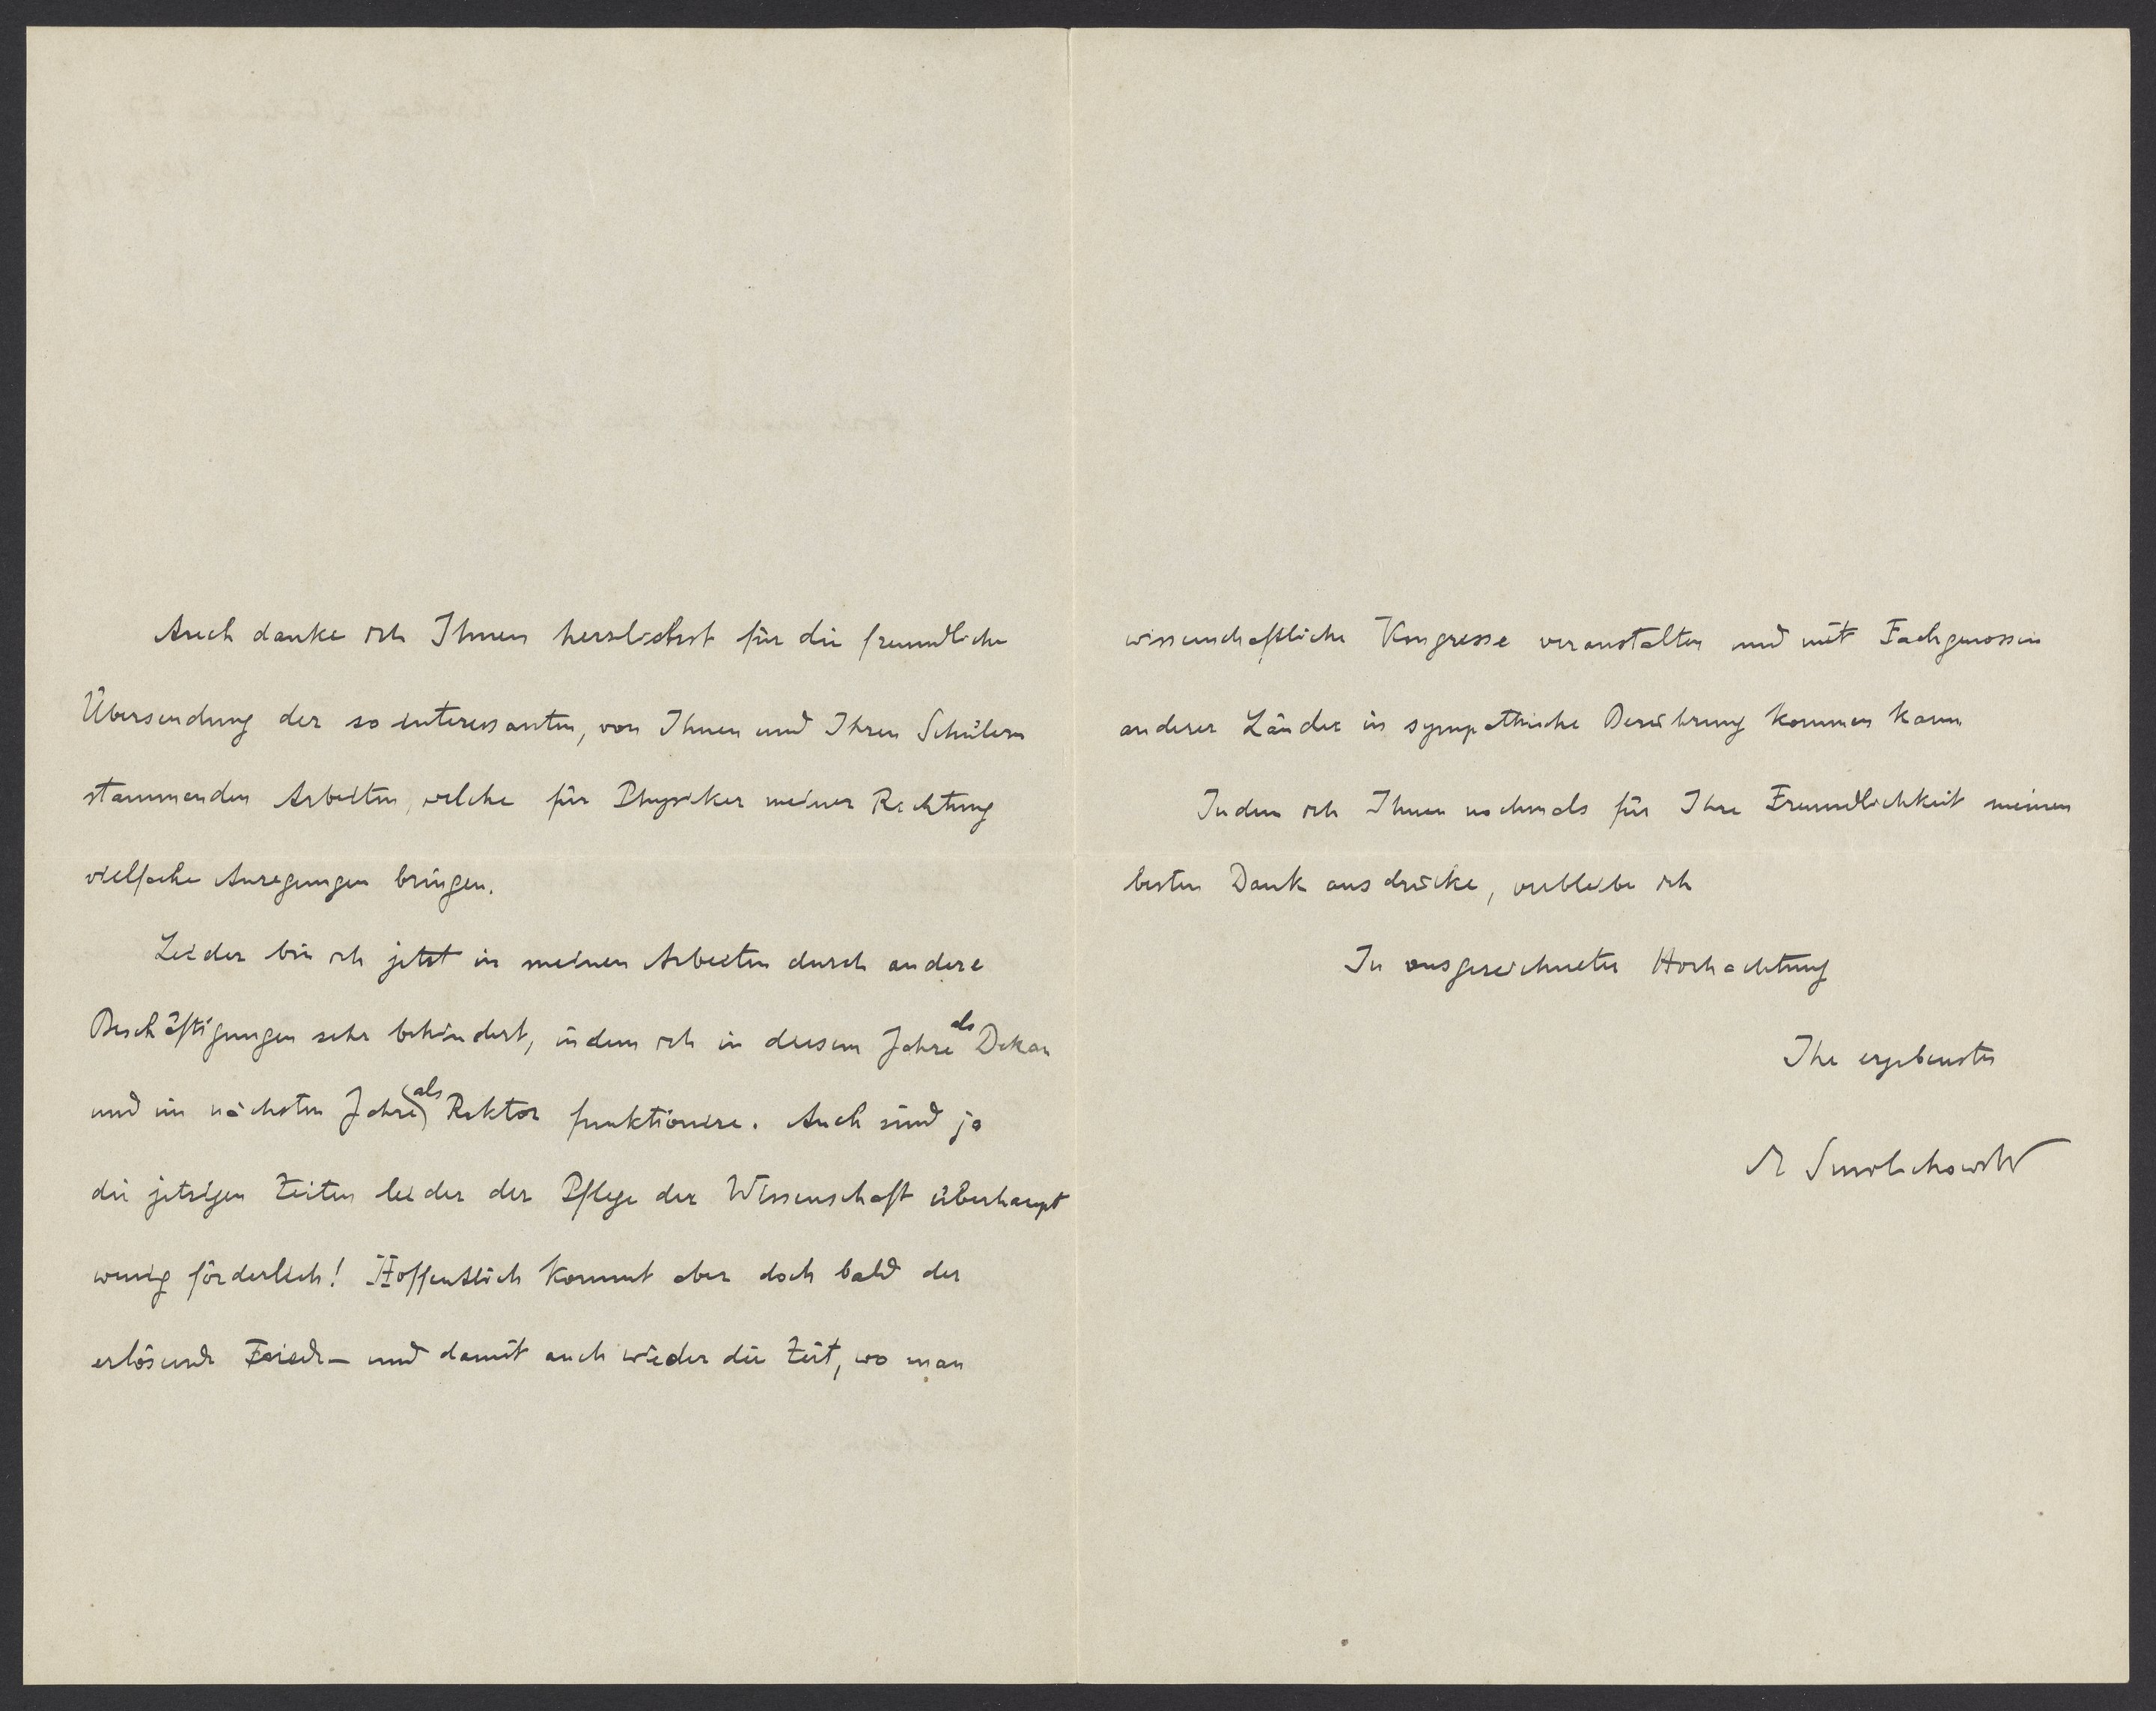 Auch danke ich Ihnen herzlichst für die freundliche
Übersendung der so interessanten, von Ihnen und Ihren Schülern
stammenden Arbeiten, welche für Physiker meiner Richtung
vielfache Anregungen bringen.
Leider bin ich jetzt in meinen Arbeiten durch andere
Beschäftigungen sehr behindert, indem ich in diesem Jahre als Dekan
und im nächsten Jahre als Rektor funktioniere. Auch sind ja
die jetzigen Zeiten leider der Pflege der Wissenschaft überhaupt
wenig förderlich! Hoffentlich kommt aber doch bald der
erlösende Friede – und damit auch wieder die Zeit, wo man
wissenschaftliche Kongresse veranstalten und mit Fachgenossen
anderer Länder in sympathische Berührung kommen kann
Indem ich Ihnen nochmals für Ihre Freundlichkeit meinen
besten Dank ausdrücke, verbleibe ich
In ausgezeichneter Hochachtung
Ihr ergebenster
M Smoluchowski